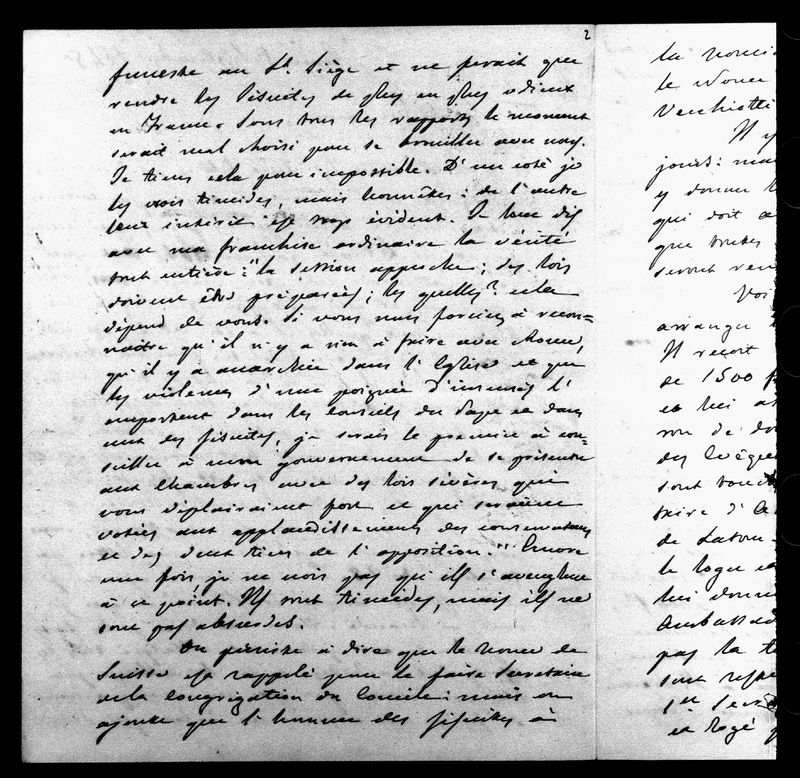 2
funeste au St. Siège et ne ferait que
rendre les Jésuites de plus en plus odieux
en France. Sous tous les rapports le moment
serait mal choisi pour se brouiller avec nous.
Je tiens cela pour impossible. D'un coté je
les vois timides, mais honnêtes: de l'autre
leur intérêt est trop évident. Je leur dis
avec ma franchise ordinaire la vérité
tout entière: "la session approche; des lois
doivent être préparées; les quelles? cela
dépend de vous. Si vous nous forciez à recon=
naître qu'il n'y a rien à faire avec Rome,
qu'il y a anarchie dans l'Eglise et que
les violences d'une poignée d'insensés l'
emportent dans les conseils du Pape et dans
ceux des Jésuites, je serais le premier à con=
seiller à mon gouvernement de se présenter
aux Chambres avec des lois sévères qui
vous déplairaient fort et qui seraient
votées aux applaudissements des conservateurs
et des deux tiers de l'opposition." Encore
une fois je ne crois pas qu'ils s'aveuglent
à ce point. Ils sont timides, mais ils ne
sont pas absurdes.
On persiste à dire que le Nonce de
Suisse est rappelé pour le faire Secrétaire
de la Congrégation du Concile: mais on
ajoute que l'homme des Jésuites à
la
le Nonce
Vecchiotti
Il y
jours: mais
y donne
qui doit
que toutes
seront
Voi
arrangé
Il reçoit
de 1500
et lui
son de
des Evêques
sont
faire d'
de
le
lui donne
Ambassad
pas la
sont
1er
et